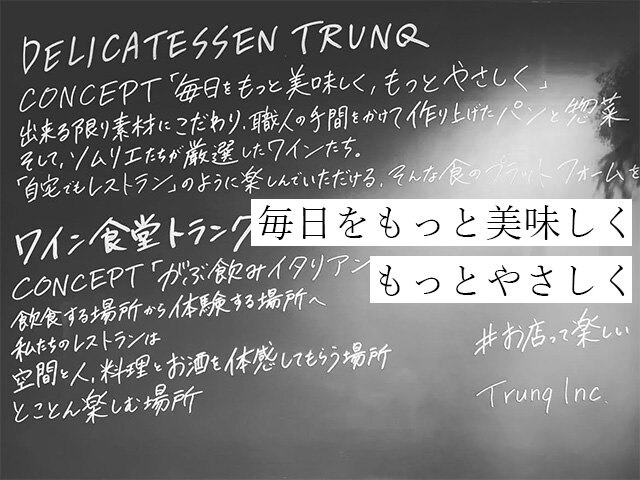 DELICATESSEN TRUNQ
CONCEPT「毎日をもっと美味しく,もっとやさしく」
出来る限り素材にこだわり、職人の手間をかけて作り上げたパンと惣菜
そして、ソムリエたちが厳選したワインたち。
「自宅でもレストラン」のように楽しんでいただける、そんな食のプラットフォームを
ワイン食堂トランク
CONCEPT「がぶ飲みイタリアン
飲食する場所から体験する場所へ
私たちのレストランは
空間と人,料理とお酒を体感してもらう場所
とことん楽しむ場所
毎日をもっと美味しく
もっとやさしく
#お店って楽しい
Trunq Inc.